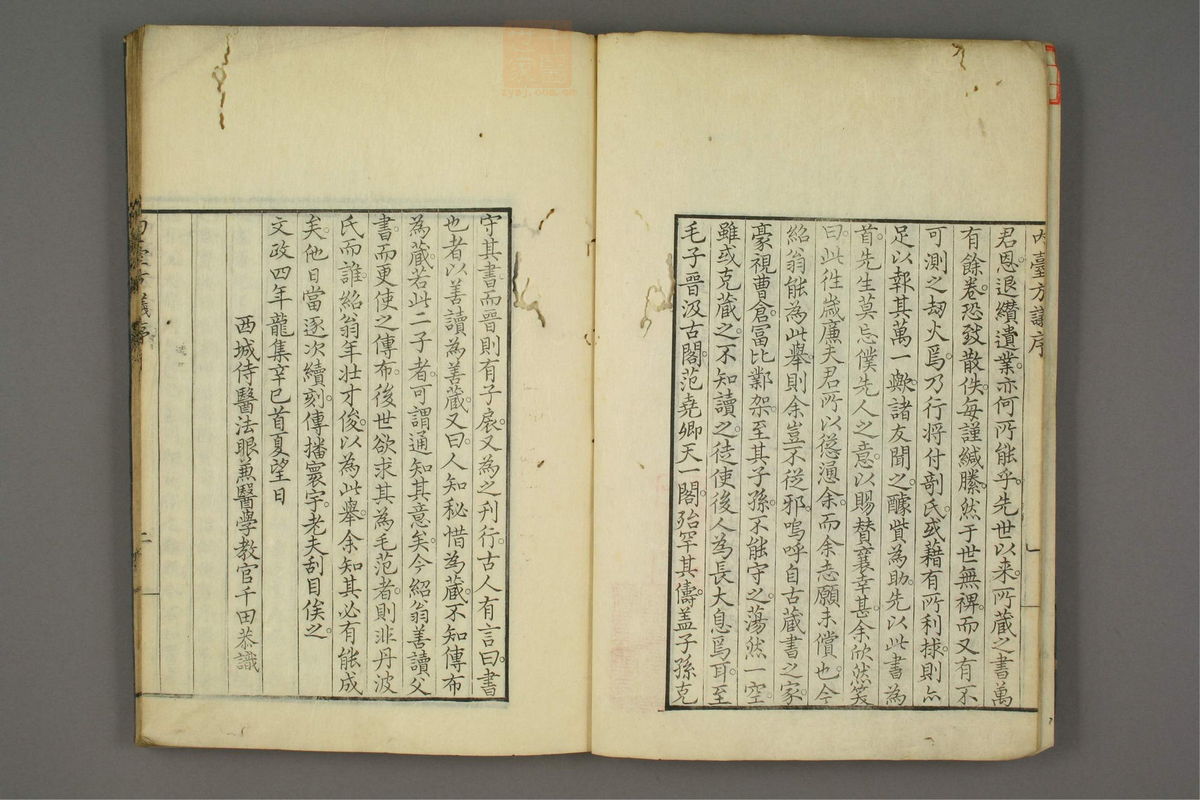 內臺方議序
君恩退纘遺業亦何所能乎先世以来所藏之書萬
有餘卷恐致散佚每謹緘縢然于世無裨而又有不
可測之刧火焉乃行将付剞氏或藉有所利捄則亦
足以報其萬一歟諸友聞之醵貲為助先以此書為
首先生莫忘僕先人之意以賜賛襄幸甚余欣然笑
曰此徃歳廉夫君所以慫慂余而余志願未償也今
紹翁能為此舉則余豈不從邪嗚呼自古藏書之家
豪視曹倉冨比鄴架至其子孫不能守之蕩然一空
雖或克藏之不知讀之徒使後人為長大息焉耳至
毛子晉汲古閣范堯卿天一閣殆罕其儔盖子孫克
一
守其書而晉則有子扆又為之刊行古人有言曰書
也者以善讀為善藏又曰人知秘惜為藏不知傳布
為藏若此二子者可謂通知其意矣今紹翁善讀父
書而更使之傳布後世欲求其為毛范者則非丹波
氏而誰紹翁年壮才俊以為此舉余知其必有能成
矣他日當逐次續刻傳播寰宇老夫刮目俟之
文政四年龍集辛巳首夏望日
西城侍醫法眼兼醫學教官千田恭識
內臺方議序
二